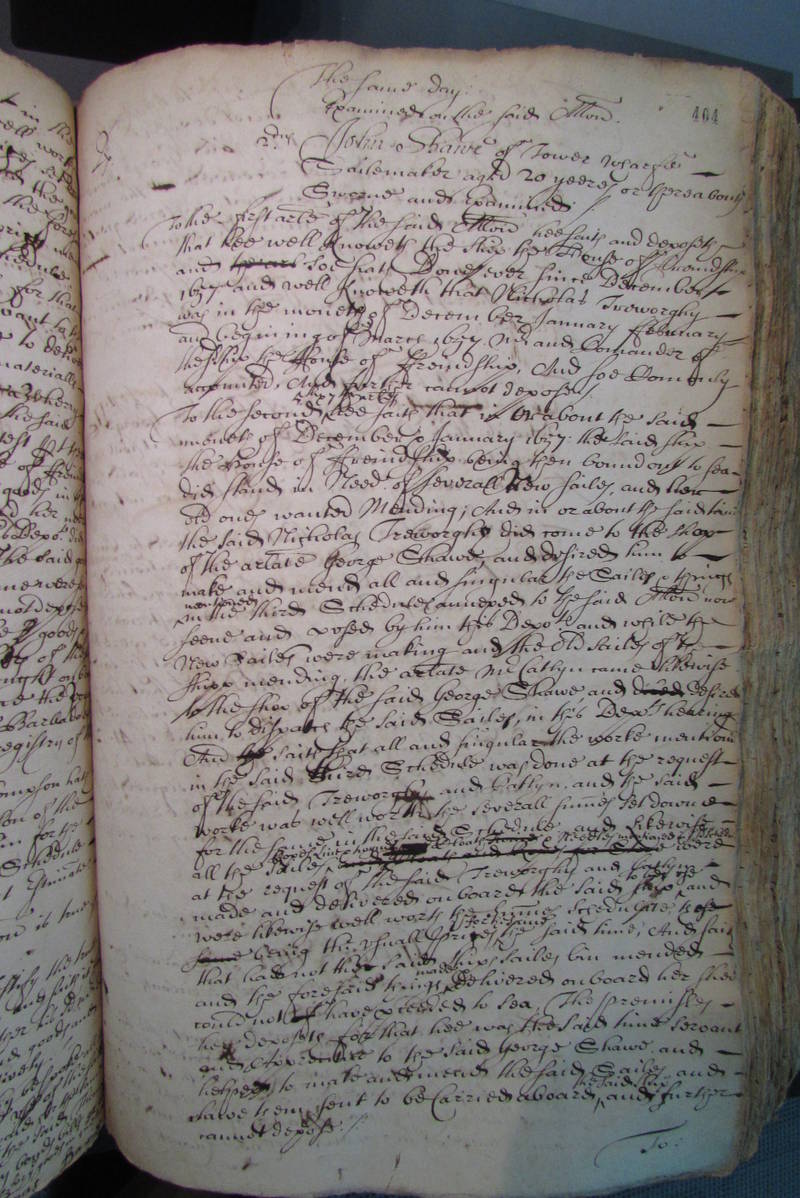 The same day:
Examined on the said Allon.
404
2dus John Shawe of Tower Wharfe
Sailemaker aged 20 yeeres or thereabouts
Sworne and Examined /
To the first arle of the said Allon hee saith and deposeth
that hee well knoweth the shipp the House of ffreindshipp
and soe hath Done ever since December
1657 and well knoweth that Nicholas Treworghy
was in the moneths of December January ffebruary
and begining of March 1657 Mr and Comander of
the shipp the House of ffreindshipp, And soe Comonly
accounted, And further cannot depose /
To the second hee saith that in or about the said
moneths of December & January 1657 the said shipp
the House of ffreindshipp being then bound out to sea
did stand in Need of severall New sailes, and her
old ones wanted Mending, And in or about the said time
the said Nicholas Treworghy did come to the shop
of the arlate George Shawe, and desired him to
make and mend all and singular the Sailes & things
mentioned
in the third Schedule annexed to the said Allon now
seene and by him this Depot and while the
New Sailes were making and the Old sailes of the
shipp mending, the arlate Mr Catlyn came likewise
to the shop of the said George Shawe and desired
him to dispatch the said Sailes, in this Depts hearing
And saith that all and singular the worke mentioned
in the said third Schedule was done at the request
of the said Treworghy and Catlyn, and the said
worke was well worth the severall summes set downe
for the same in the said Schedule and likewise
all the sailes were
at the request of the said Treworghy and Catlyn
made and delivered on board the said shipp, and
were likewise well worth the
being the usuall prizes the said time, And saith
that had not the said shipps sailes bin mended
and the foresaid things made delivered onboard her shee
could not have proceeded to sea, The premisses
hee deposeth for that hee was the said time servant
and Apprentice to the said George Shawe, and
helped to make and mend the said Sailes, and
the said shipp
have them sent to be Carried aboard, and further
cannot depose. /
To: